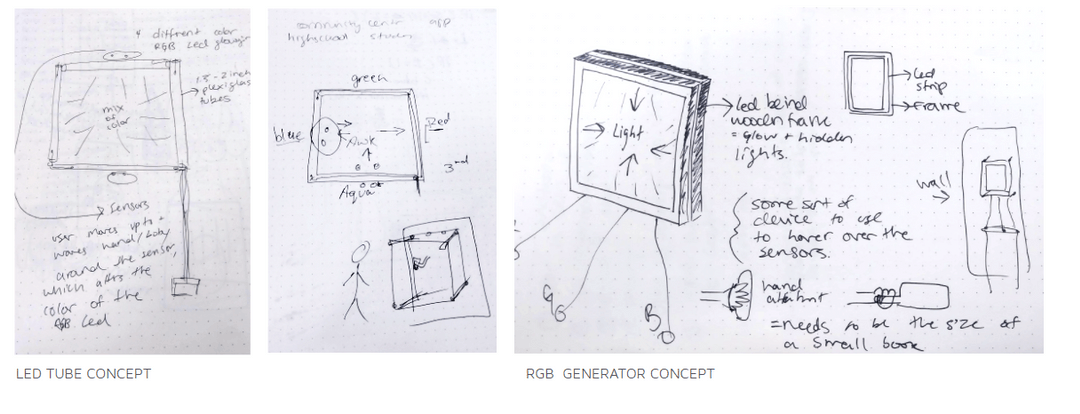 4 diffrent color
RGB Led glowing
1.5 - 2 inch
plexiglass
tubes
mix
of
color
Sensors
user moves up to +
waves hand/body
around the sensor,
which affts the
color of the
RGB Led
LED TUBE CONCEPT
community center
highschool
green
blue
Red
3rd
Aqua
Light
led beind
wooden frame
= glow + hidden
lights.
led
strip
Frame
wall
some sort of
device to use
to hover over the
sensors.
B
hand
=needs to be the size of
a small book
RGB GENERATOR CONCEPT